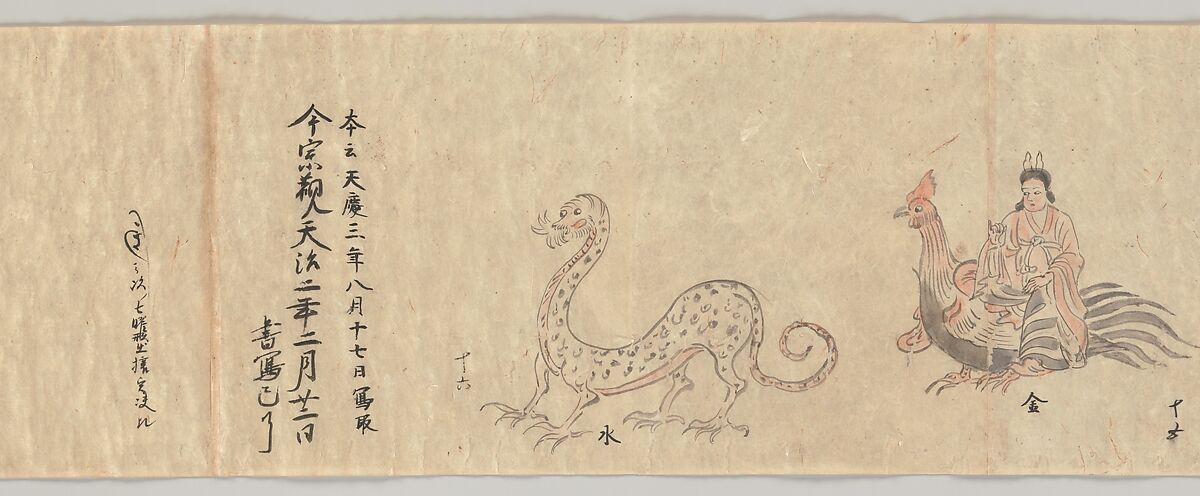 十五
金
水
十六
本云天慶三年八月十七日寫取
今宗観天治二年二月廿二日
書寫已了
次七曜